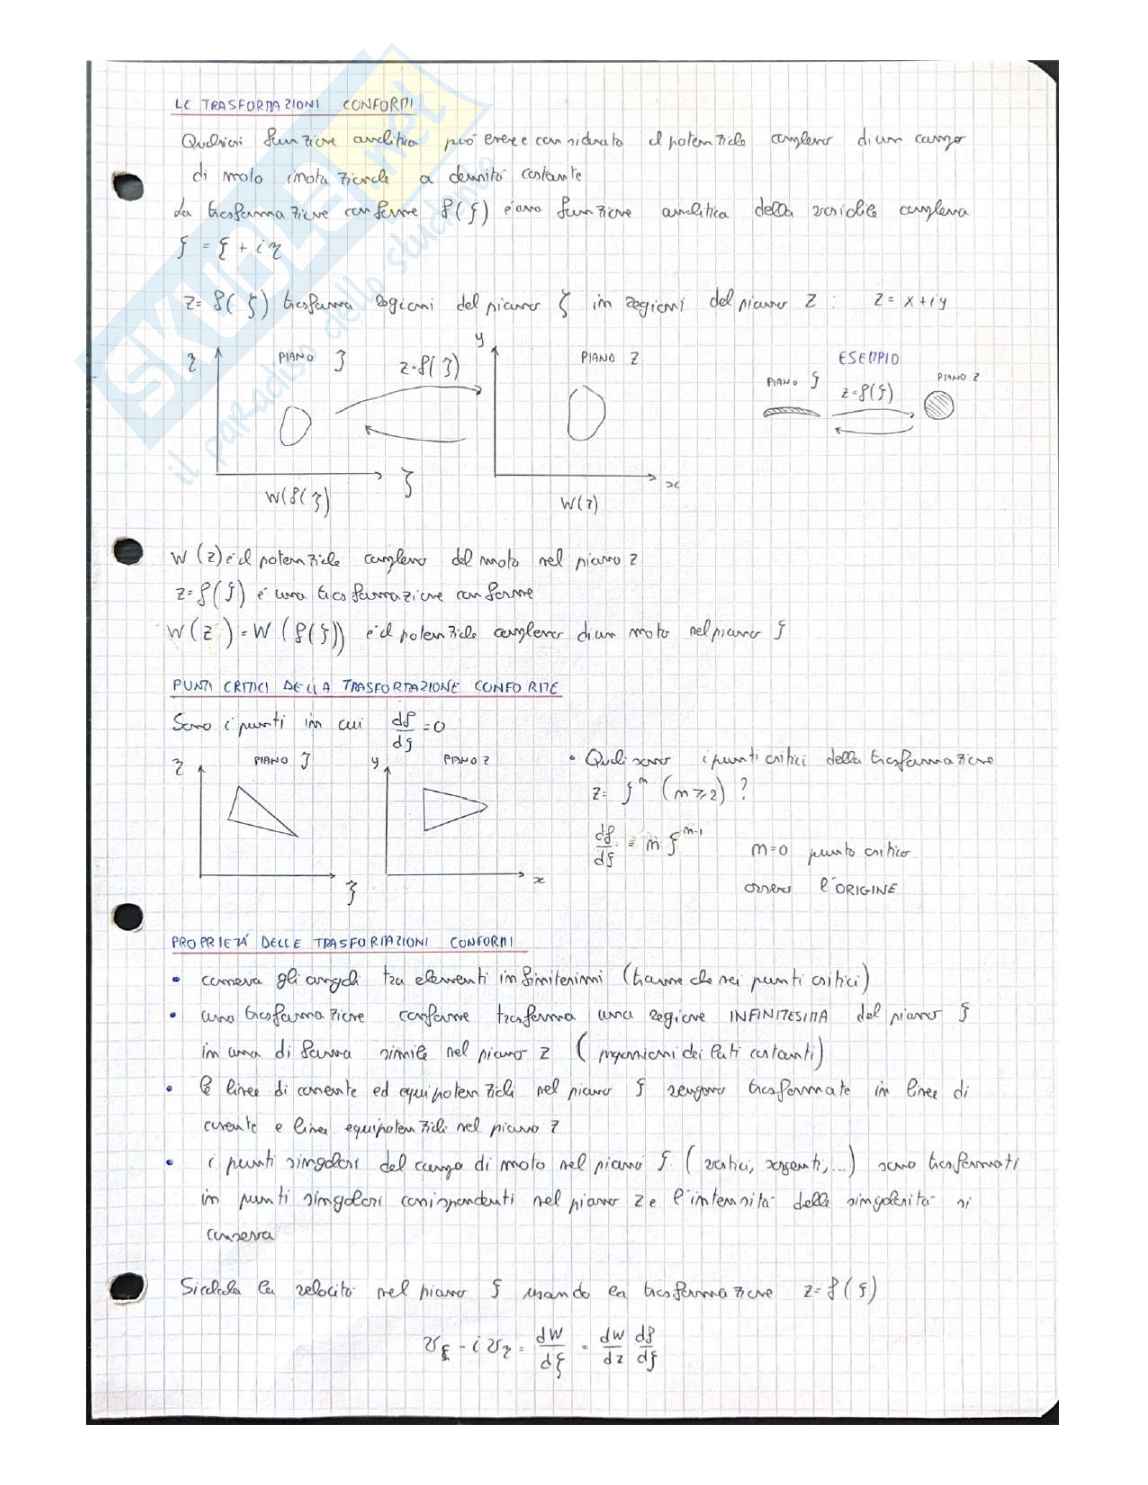 LE TRASFORMAZIONI CONFORMI
Qualsiasi funzione analitica può essere considerato il potenziale complesso di un campo
di moto irrotazionale a densità costante
La trasformazione conforme f(ζ) è una funzione analitica della variabile complessa
ζ = ξ + iη
z= f(ζ) trasforma regioni del piano ζ in regioni del piano z : z = x+iy
η PIANO ζ z=f(ζ) y PIANO z ESEMPIO
PIANO ζ z=f(ζ) PIANO z
ξ x
W(f(ζ) W(z)
W(z) è il potenziale complesso del moto nel piano z
z=f(ζ) è una trasformazione conforme
W(z) = W(f(ζ)) è il potenziale complesso di un moto nel piano ζ
PUNTI CRITICI DELLA TRASFORMAZIONE CONFORME
Sono i punti in cui df/dζ = 0
η PIANO ζ y PIANO z
ξ x
• Quali sono i punti critici della trasformazione
z= ζ^m (m≥2) ?
df/dζ = m ζ^m-1 m=0 punto critico
ovvero l'ORIGINE
PROPRIETÀ DELLE TRASFORMAZIONI CONFORMI
• conserva gli angoli tra elementi infinitesimi (tranne che nei punti critici)
• una trasformazione conforme trasforma una regione INFINITESIMA del piano ζ
in una di forma simile nel piano z (proporzioni dei lati costanti)
• le linee di corrente ed equipotenziali nel piano ζ vengono trasformate in linee di
corrente e linee equipotenziali nel piano z
• i punti singolari del campo di moto nel piano ζ (vortici, sorgenti, ...) sono trasformati
in punti singolari corrispondenti nel piano z e l'intensità della singolarità si
conserva
Si calcola la velocità nel piano ζ usando la trasformazione z=f(ζ)
v_ξ - i v_η = dW/dζ = dW/dz df/dζ
SKUOLA.net
il paradiso dello studente